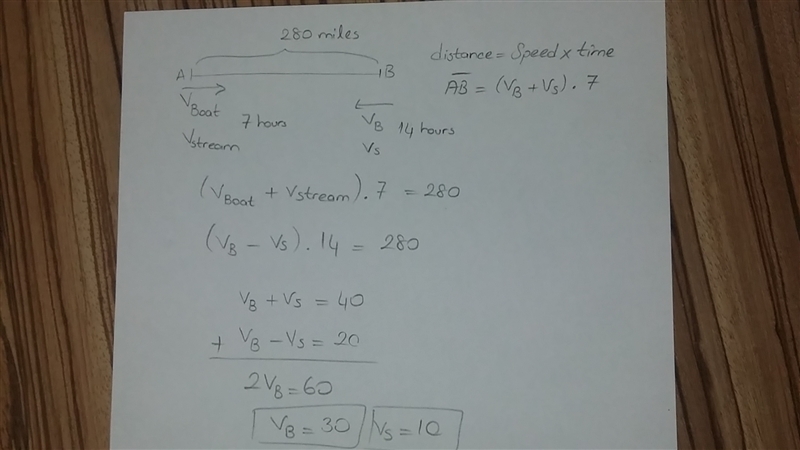 280 miles
A B
V Boat 7 hours
Vstream
VB 14 hours
Vs
distance = Speed x time
AB = (VB + Vs) . 7
(VBoat + Vstream) . 7 = 280
(VB - Vs) . 14 = 280
VB + Vs = 40
+ VB - Vs = 20
2VB = 60
VB = 30 Vs = 10